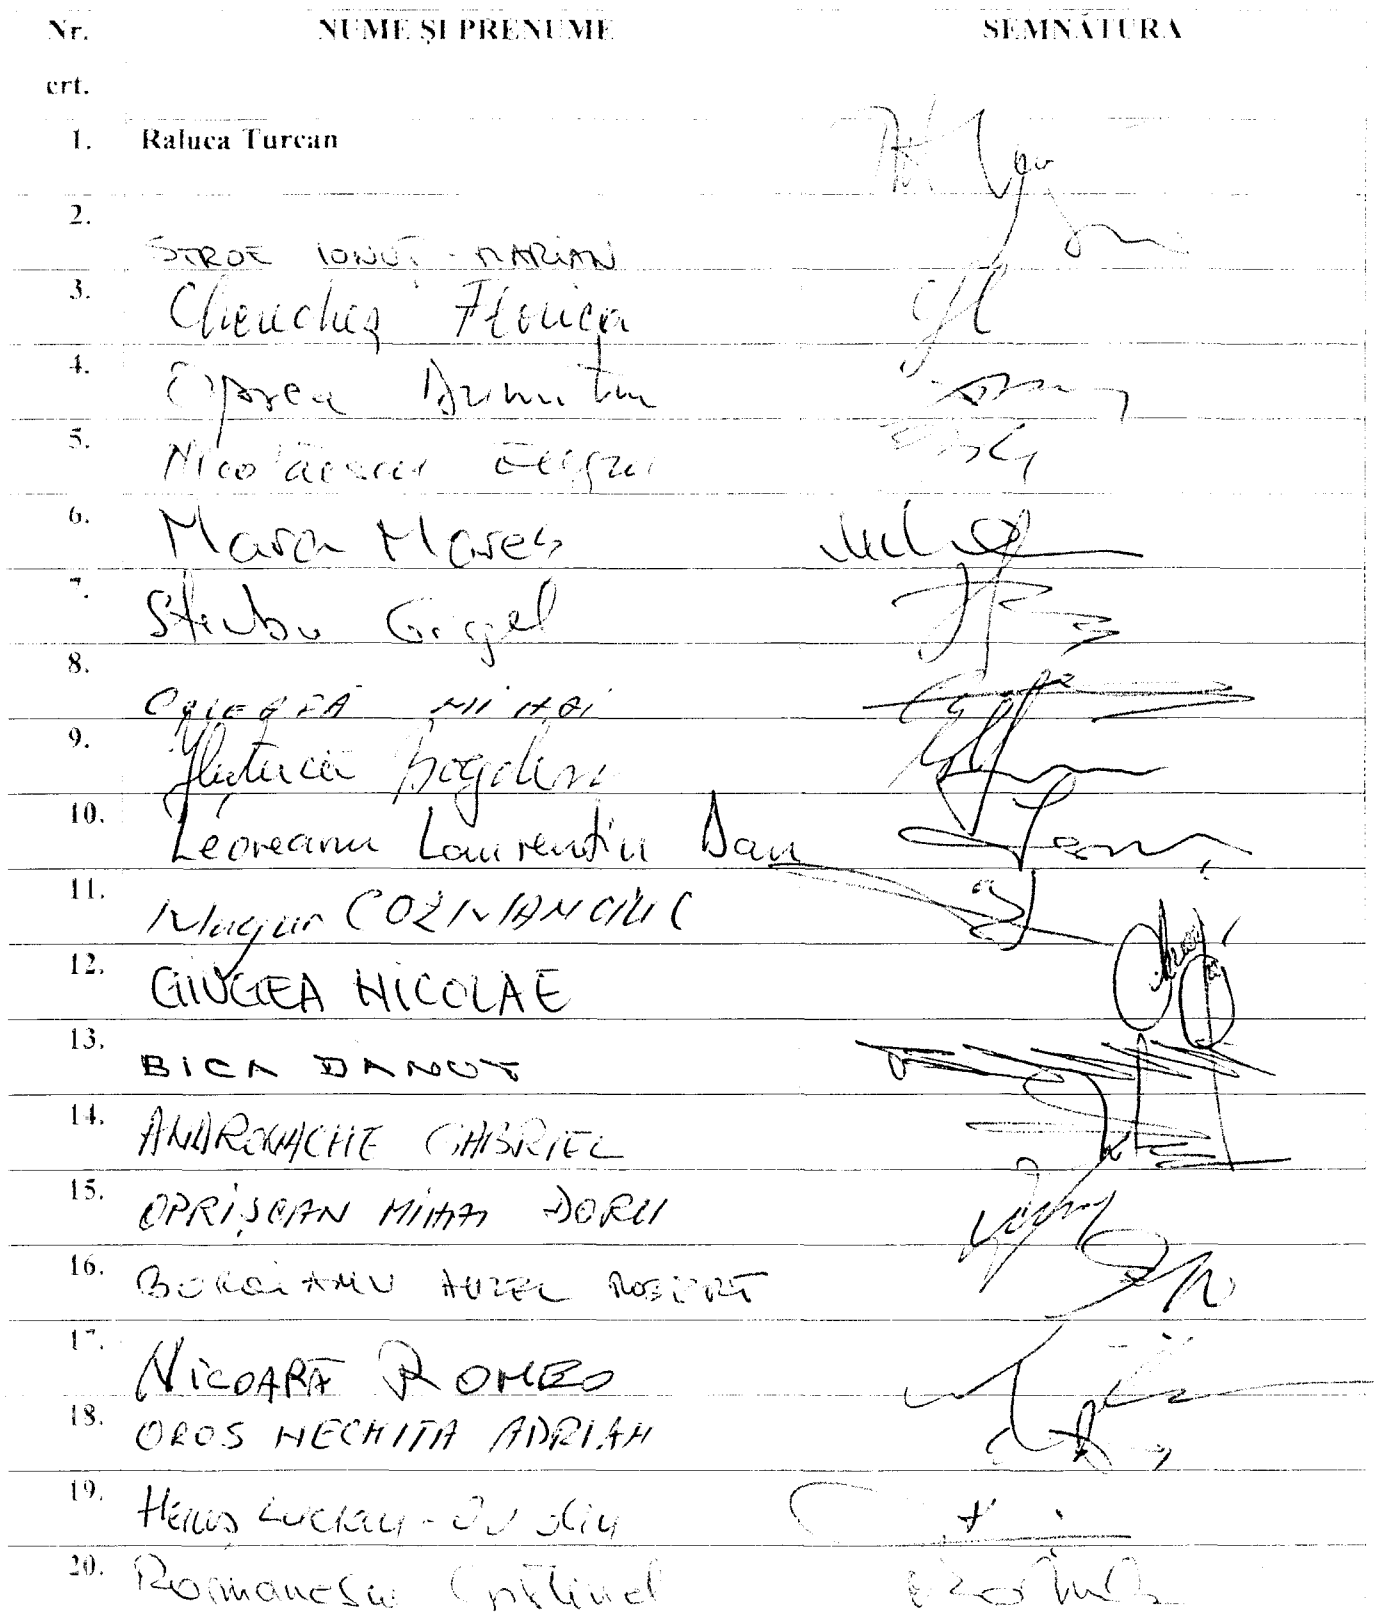 Nr. crt. NUME ȘI PRENUME SEMNĂTURA
1. Raluca Turcan
2. STROE IONUȚ - MARIAN
3. Cherecheș Florica
4. Oprea Dumitru
5. Nicolăescu
6. Mara Mareș
7. Știrbu Gigel
8. CULEAFĂ MIHAI
9. Huțucă Bogdan
10. Leoreanu Laurențiu Dan
11. Mugur COZMANCIUC
12. GIUGEA NICOLAE
13. BICA DANUT
14. ANDRONACHE GABRIEL
15. OPRIȘCAN MIHAI DORU
16. BOROIANU AUREL ROBERT
17. NICOARĂ ROMEO
18. OROS NECHITA ADRIAN
19. Heiuș Lucian-Ovidiu
20. Romanescu Cătălinel